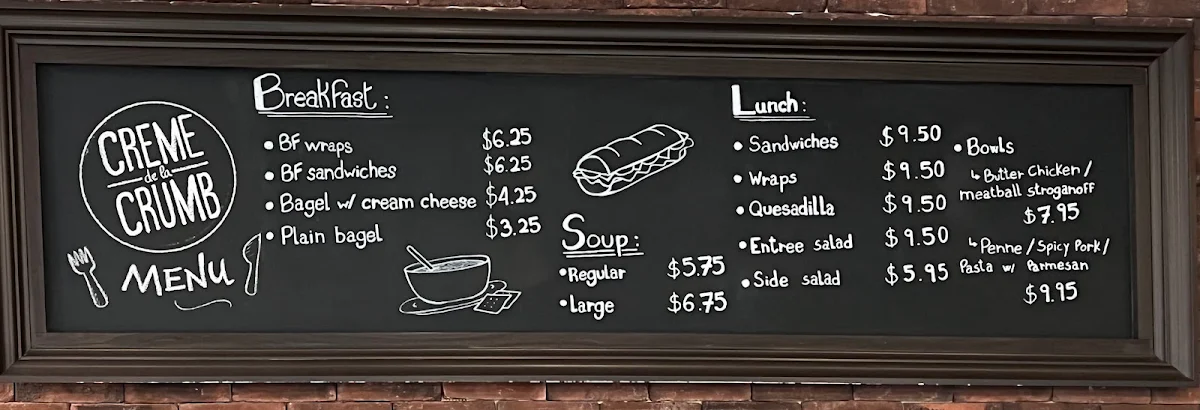 CREME
de la
CRUMB
MENU
Breakfast:
• BF wraps $6.25
• BF sandwiches $6.25
• Bagel w/ cream cheese $4.25
• Plain bagel $3.25
Soup:
• Regular $5.75
• Large $6.75
Lunch:
• Sandwiches $9.50
• Wraps $9.50
• Quesadilla $9.50
• Entree salad $9.50
• Side salad $5.95
• Bowls
↳ Butter Chicken /
meatball stroganoff
$7.95
↳ Penne / Spicy Pork /
Pasta w/ Parmesan
$9.95